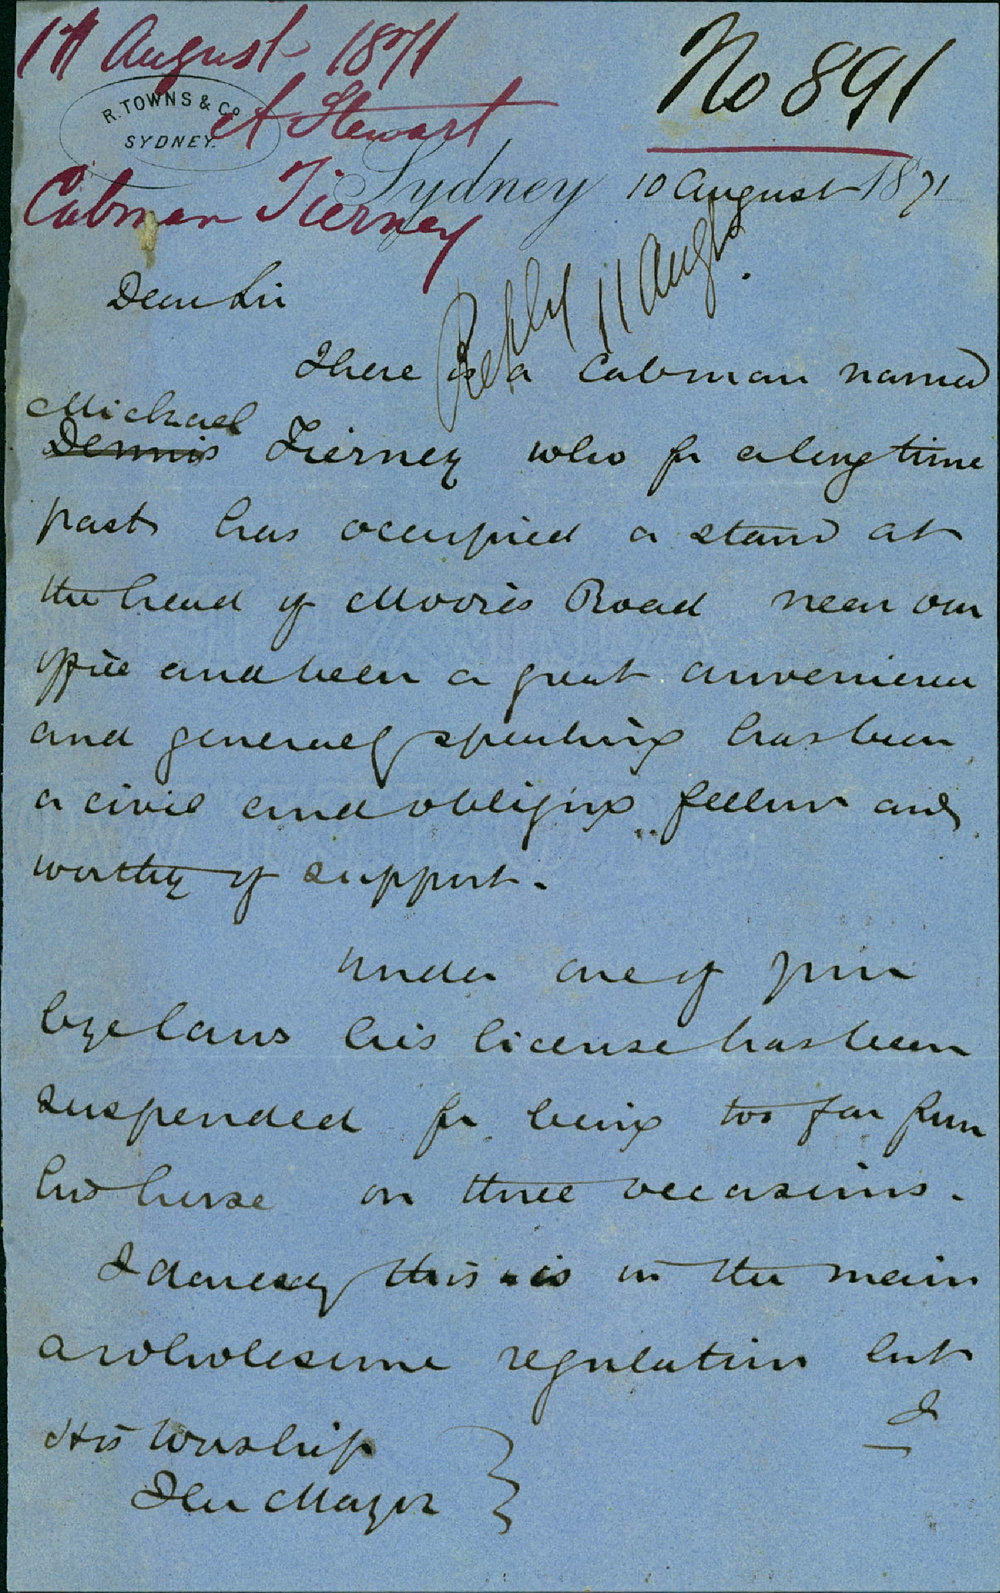 11 August 1871
R. TOWNS & Co
SYDNEY.
A Stewart
Cabman Tierney
No 891
Sydney 10 August 1871
Reply 11 Augt.
Dear Sir
There is a Cabman named
Michael
Dennis Tierney who for a long time
past has occupied a stand at
the head of Moores Road near our
office and been a great convenience
and generally speaking has been
a civil and obliging fellow and
worthy of support.
Under one of your
bye laws his license has been
suspended for being too far from
his horse on three occasions.
I daresay this is in the main
a wholesome regulation but
I
His Worship
The Mayor